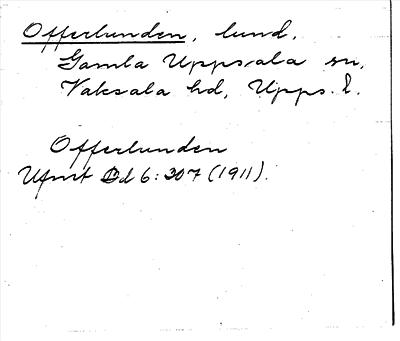 Offerlunden, lund.
Gamla Uppsala sn,
Vaksala hd, Upps. l.
Offerlunden
Ufmt Bd 6:307 (1911).